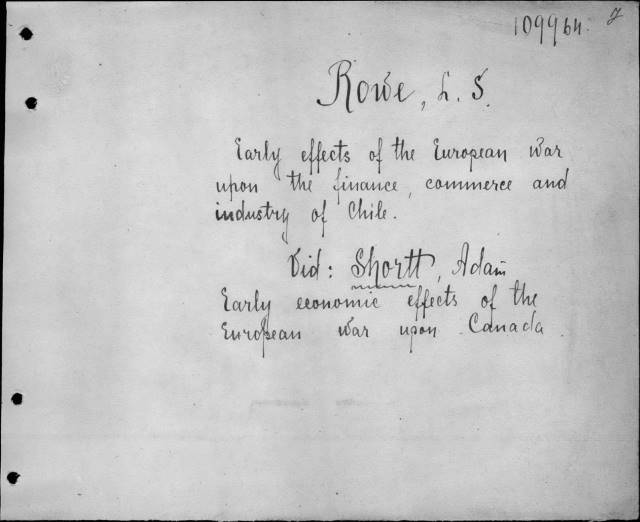 109964
Rowe, L. S.
Early effects of the European War
upon the finance, commerce and
industry of Chile.
Vid: Shortt, Adam
Early economic effects of the
European War upon Canada.